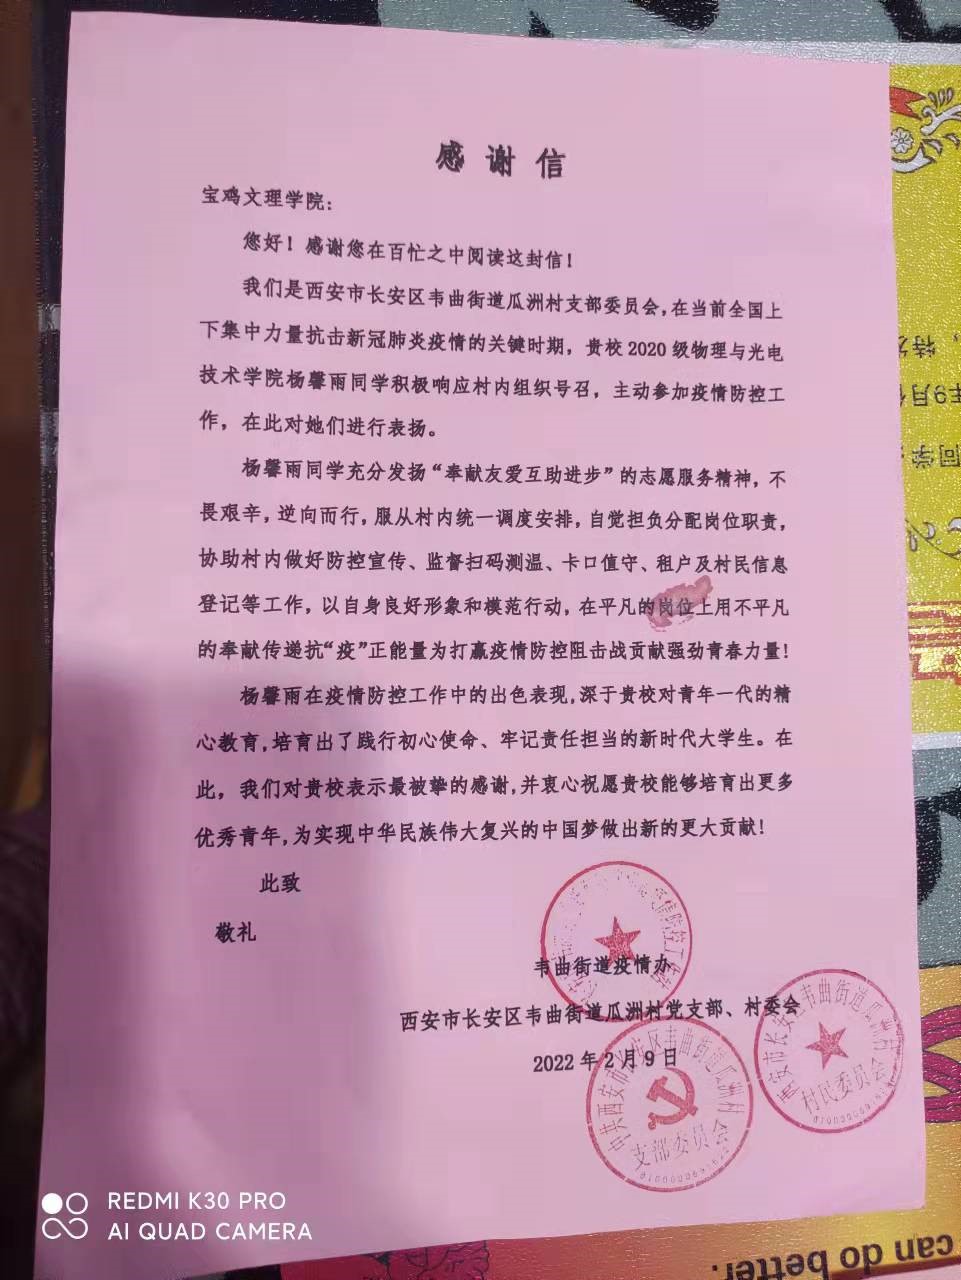 感谢信
宝鸡文理学院：
您好！感谢您在百忙之中阅读这封信！
我们是西安市长安区韦曲街道瓜洲村支部委员会,在当前全国上
下集中力量抗击新冠肺炎疫情的关键时期，贵校 2020 级物理与光电
技术学院杨馨雨同学积极响应村内组织号召，主动参加疫情防控工
作，在此对她们进行表扬。
杨馨雨同学充分发扬“奉献友爱互助进步”的志愿服务精神，不
畏艰辛，逆向而行，服从村内统一调度安排，自觉担负分配岗位职责，
协助村内做好防控宣传、监督扫码测温、卡口值守、租户及村民信息
登记等工作，以自身良好形象和模范行动，在平凡的岗位上用不平凡
的奉献传递抗“疫”正能量为打赢疫情防控阻击战贡献强劲青春力量!
杨馨雨在疫情防控工作中的出色表现,深于贵校对青年一代的精
心教育,培育出了践行初心使命、牢记责任担当的新时代大学生。在
此，我们对贵校表示最被挚的感谢,并衷心祝愿贵校能够培育出更多
优秀青年,为实现中华民族伟大复兴的中国梦做出新的更大贡献!
此致
敬礼
韦曲街道疫情办
西安市长安区韦曲街道瓜洲村党支部、村委会
2022 年 2 月 9 日
情防控工
中共西安市长安区韦曲街道瓜洲村
支部委员会
西安市长安区韦曲街道瓜洲村
村民委员会
，特发
年9月
同学
can do better.
REDMI K30 PRO
AI QUAD CAMERA